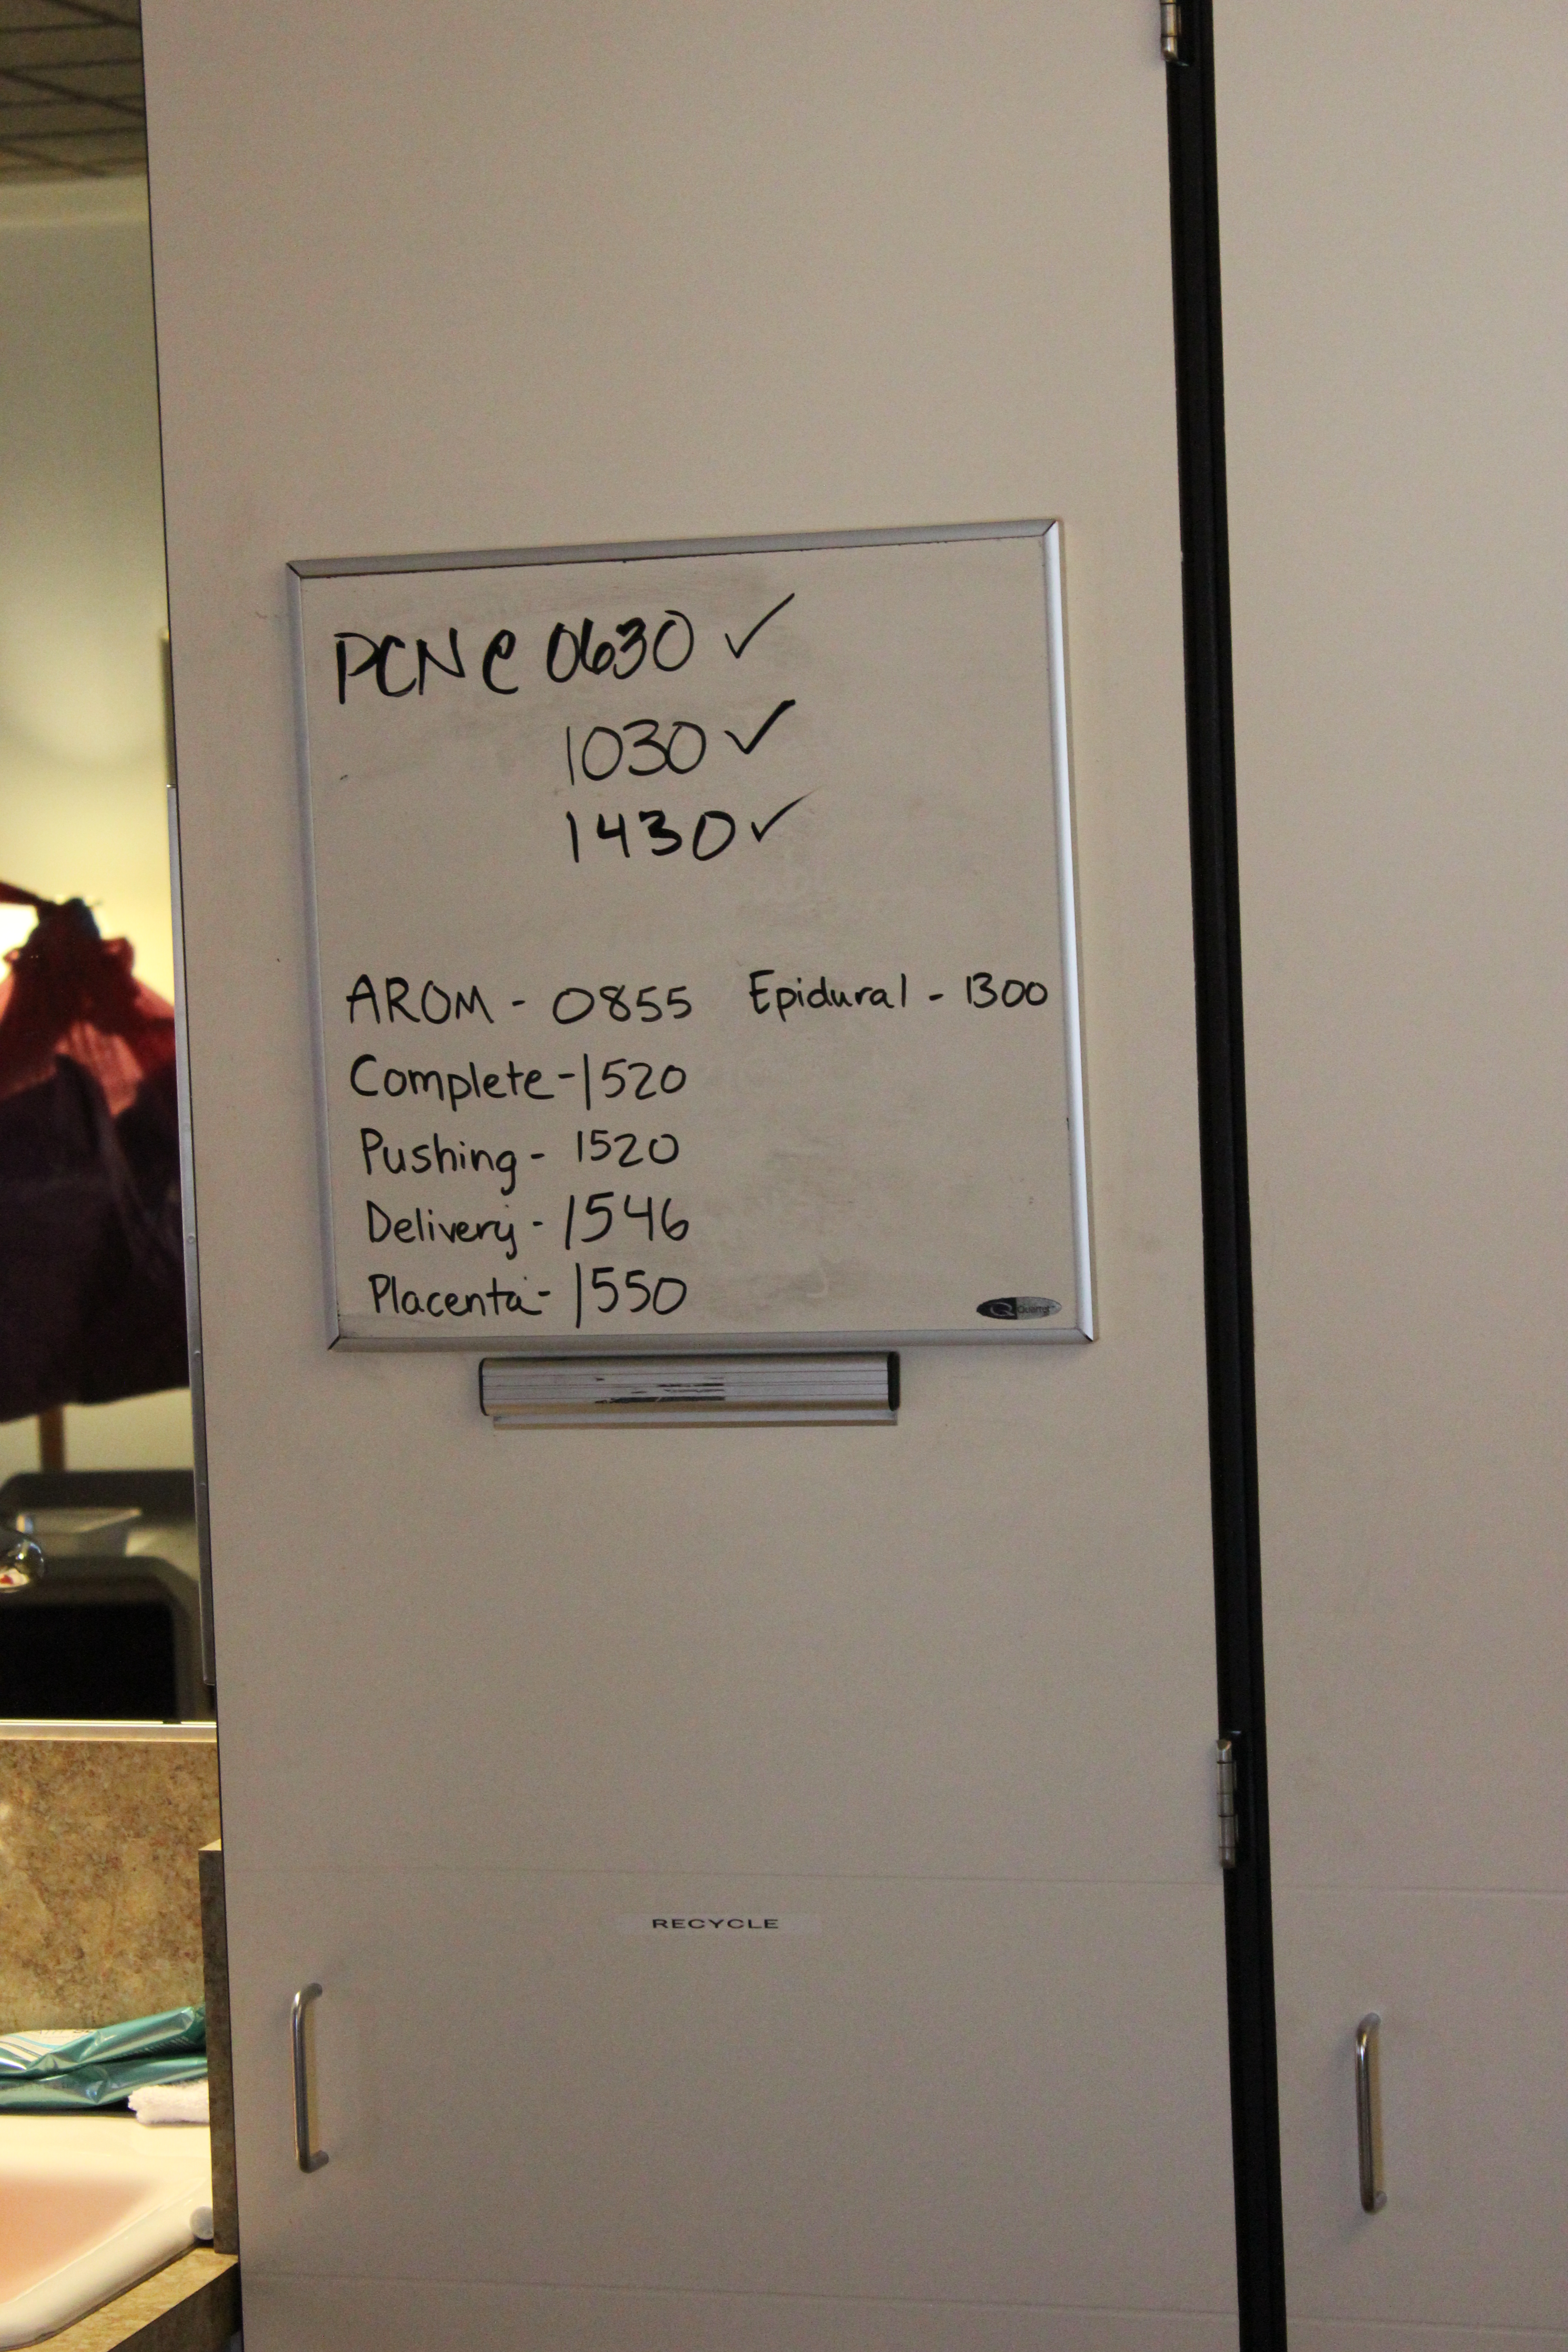 PCN @ 0630 ✓
1030 ✓
1430 ✓
AROM - 0855 Epidural - 1300
Complete - 1520
Pushing - 1520
Delivery - 1546
Placenta - 1550
Quartet
RECYCLE